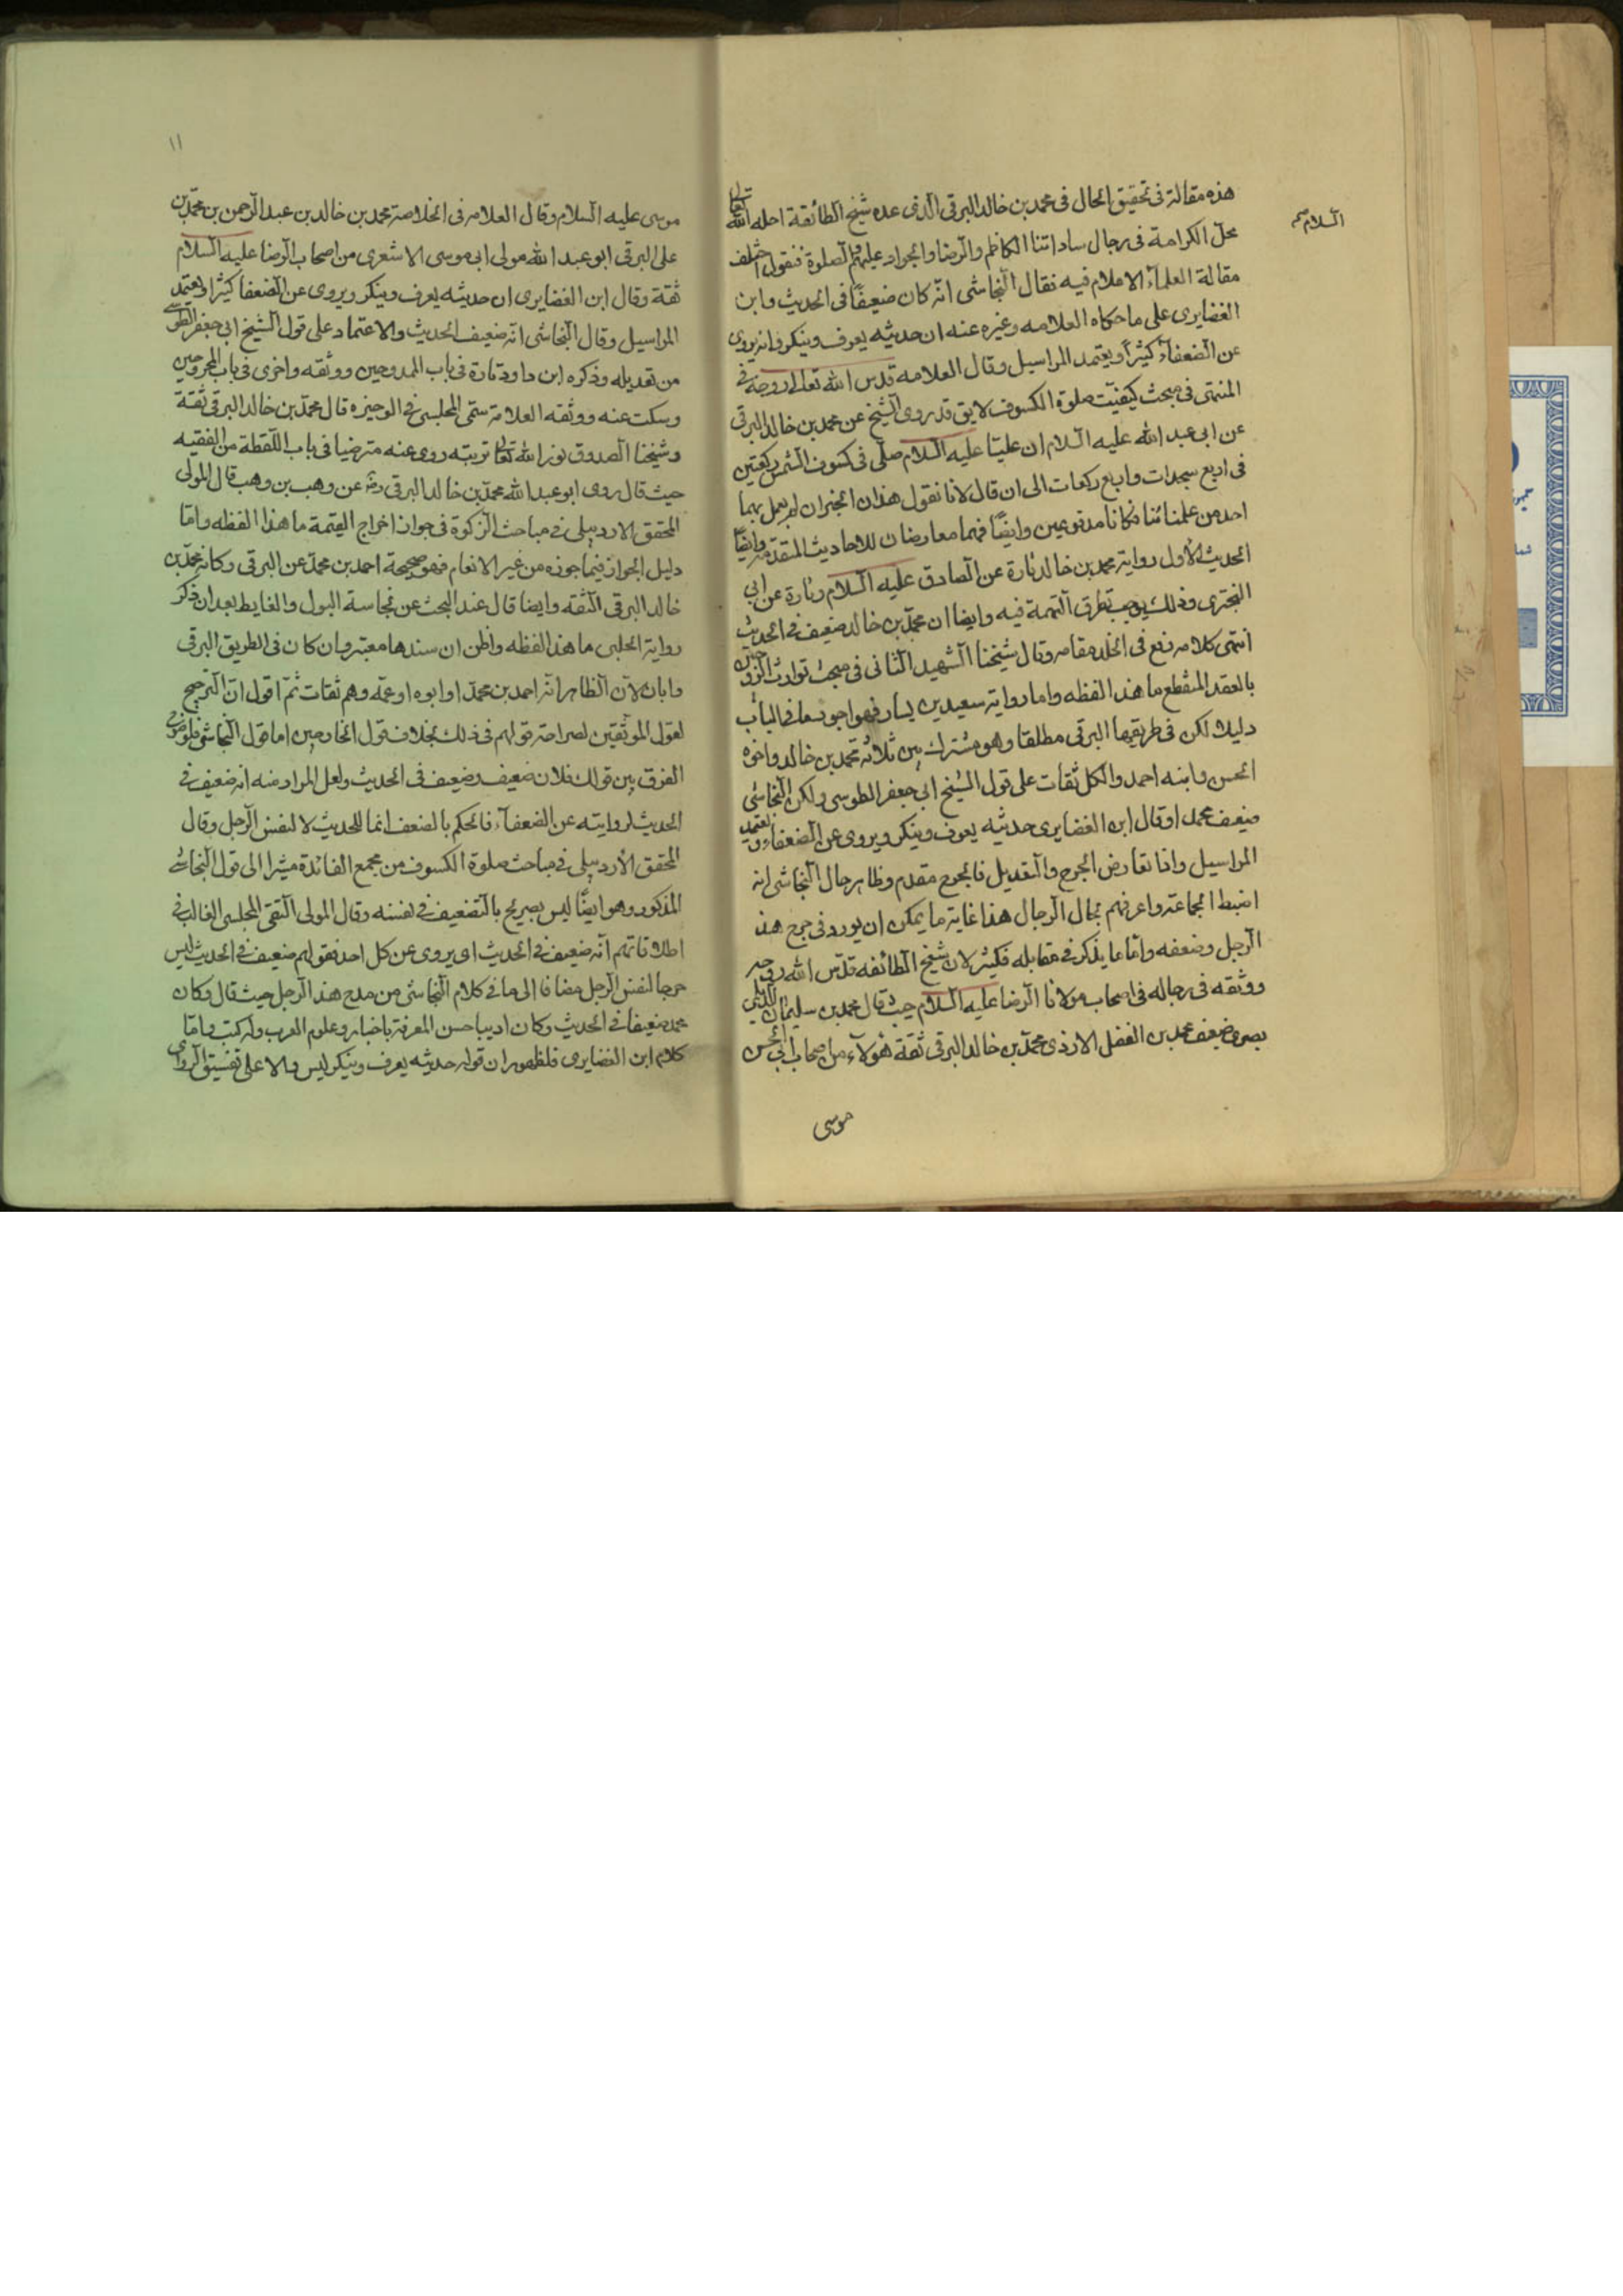 هذه مقالة فى تحقيق الحال فى محمد بن خالد البرقى الذى عده شيخ الطائفة احله الله تعالى
محل الكرامة فى رجال ساداتنا الكاظم والرضا والجواد عليهم الصلوة والسلام فنقول اختلف
مقالة العلماء الاعلام فيه فقال النجاشى انه كان ضعيفا فى الحديث وابن
الغضايرى على ما حكاه العلامه وغيره عنه ان حديثه يعرف وينكر وانه يروى
عن الضعفاء كثيرا ويعتمد المراسيل وقال العلامه قدس الله تعالى روحه فى
المنتهى فى مبحث كيفيت صلوة الكسوف لايق قد روى الشيخ عن محمد بن خالد البرقى
عن ابى عبد الله عليه السلام ان عليا عليه السلام صلى فى كسوف الشمس ركعتين
فى اربع سجدات واربع ركعات الى ان قال لانا نقول هذان الخبران لم يعمل بهما
احد من علمائنا فكانا مدفوعين وايضا فهما معارضان للاحاديث المتقدمه وايضا
الحديث الاول رواية محمد بن خالد تارة عن الصادق عليه السلام وتارة عن ابى
البخترى وذلك يوجب تطرق التهمة فيه وايضا ان محمد بن خالد ضعيف فى الحديث
انتهى كلامه رفع فى الخلد مقامه وقال شيخنا الشهيد الثانى فى مبحث توارث الزوجين
بالعقد المنقطع ما هذا لفظه واما رواية سعيد بن يسار فهو اجود ما فى الباب
دليلا لكن فى طريقها البرقى مطلقا وهو مشترك بين ثلاثه محمد بن خالد واخوه
الحسن وابنه احمد والكل ثقات على قول الشيخ ابى جعفر الطوسى ولكن النجاشى
ضعف محمدا وقال ابن الغضايرى حديثه يعرف وينكر ويروى عن الضعفاء ويعتمد
المراسيل واذا تعارض الجرح والتعديل فالجرح مقدم وظاهر حال النجاشى انه
اضبط الجماعة واعرفهم بحال الرجال هذا غاية ما يمكن ان يورد فى جرح هذا
الرجل وضعفه واما ما يذكر فى مقابله فكثير لان شيخ الطائفه قدس الله روحه
ووثقه فى رجاله فى اصحاب مولانا الرضا عليه السلام حيث قال محمد بن سليمان الديلمى
بصرى ضعيف محمد بن الفضل الازدى محمد بن خالد البرقى ثقة هؤلاء من اصحاب ابى الحسن
موسى
السلام صح
١١
موسى عليه السلام وقال العلامه فى الخلاصة محمد بن خالد بن عبد الرحمن بن محمد بن
على البرقى ابو عبد الله مولى ابى موسى الاشعرى من اصحاب الرضا عليه السلام
ثقة وقال ابن الغضايرى ان حديثه يعرف وينكر ويروى عن الضعفا كثيرا ويعتمد
المراسيل وقال النجاشى انه ضعيف الحديث والاعتماد على قول الشيخ ابى جعفر الطوسى
من تعديله وذكره ابن داود تارة فى باب الممدوحين ووثقه واخرى فى باب المجروحين
وسكت عنه ووثقه العلامة سمى المجلسى فى الوجيزه قال محمد بن خالد البرقى ثقة
وشيخنا الصدوق نور الله تعالى تربته روى عنه مترضيا فى باب اللقطة من الفقيه
حيث قال روى ابو عبد الله محمد بن خالد البرقى رضه عن وهب بن وهب قال المولى
المحقق الاردبيلى فى مباحث الزكوة فى جواز اخراج القيمة ما هذا لفظه واما
دليل الجواز فيما جوزه من غير الانعام فهو صحيحة احمد بن محمد عن البرقى وكانه محمد بن
خالد البرقى الثقه وايضا قال عند البحث عن نجاسة البول والغايط بعد ان ذكر
رواية الحلبى ما هذا لفظه واظن ان سندها معتبر وان كان فى الطريق البرقى
وابان لان الظاهر انه احمد بن محمد او ابوه او عمه وهم ثقات ثم اقول ان الترجيح
لقول الموثقين لصراحة قولهم فى ذلك بخلاف قول الجارحين اما قول النجاشى فلوضوح
الفرق بين قولك فلان ضعيف وضعيف فى الحديث ولعل المراد منه انه ضعيف فى
الحديث لروايته عن الضعفاء فالحكم بالضعف انما للحديث لا لنفس الرجل وقال
المحقق الاردبيلى فى مباحث صلوة الكسوف من مجمع الفائدة مشيرا الى قول النجاشى
المذكور وهو ايضا ليس بصريح بالتضعيف فى نفسه وقال المولى التقى المجلسى الغالب فى
اطلاقاتهم انه ضعيف فى الحديث اى يروى عن كل احد فقولهم ضعيف فى الحديث ليس
جرحا لنفس الرجل مضافا الى ما فى كلام النجاشى من مدح هذا الرجل حيث قال وكان
محمد ضعيفا فى الحديث وكان اديبا حسن المعرفة باخبار وعلوم العرب وله كتب واما
كلام ابن الغضايرى فلظهور ان قوله حديثه يعرف وينكر ليس دالا على تفسيق الراوى